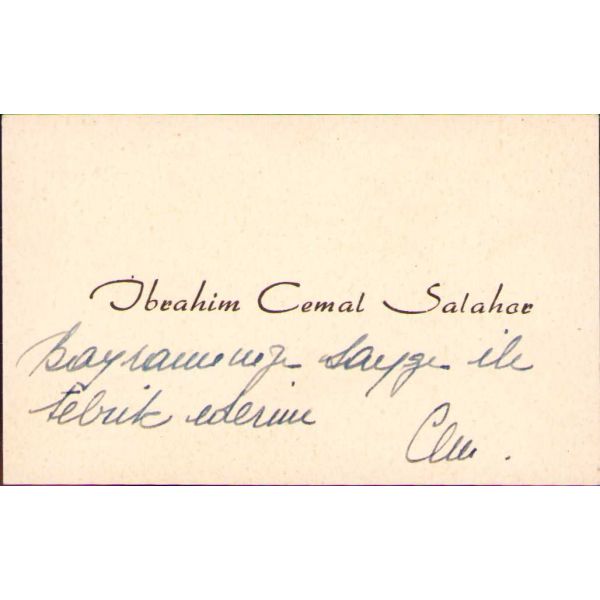 İbrahim Cemal Salahor
Bayramınızı saygı ile
tebrik ederim
Cem.